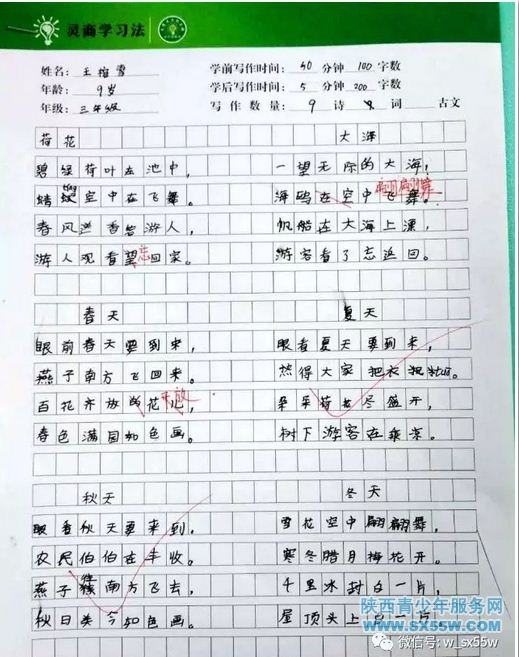 灵商学习法
姓名: 王 雪
学前写作时间: 40 分钟 100 字数
年龄: 9岁
学后写作时间: 5 分钟 200 字数
年级: 三年级
写作数量: 9 诗 词 古文
荷花
碧绿荷叶在池中,
蜻蜓空中在飞舞。
春风送香给游人,
游人观看望忘回家。
大海
一望无际的大海,
海鸥在空中飞舞。
翩翩舞
帆船在大海上漂,
游客看了忘返回。
春天
眼前春天要到来,
燕子南方飞回来。
百花齐放的花儿,
开放
春色满园如色画。
夏天
眼看夏天要到来,
热得大家把衣
朵朵荷花尽盛开,
树下游客在乘凉。
秋天
眼看秋天要来到,
农民伯伯在丰收。
燕子 南方飞去,
秋日 如色画。
冬天
雪花空中翩翩舞,
寒冬腊月梅花开。
千里冰封白一片,
屋顶头上白一片。
陕西青少年服务网
www.sx55w.com
微信号: w_sx55w